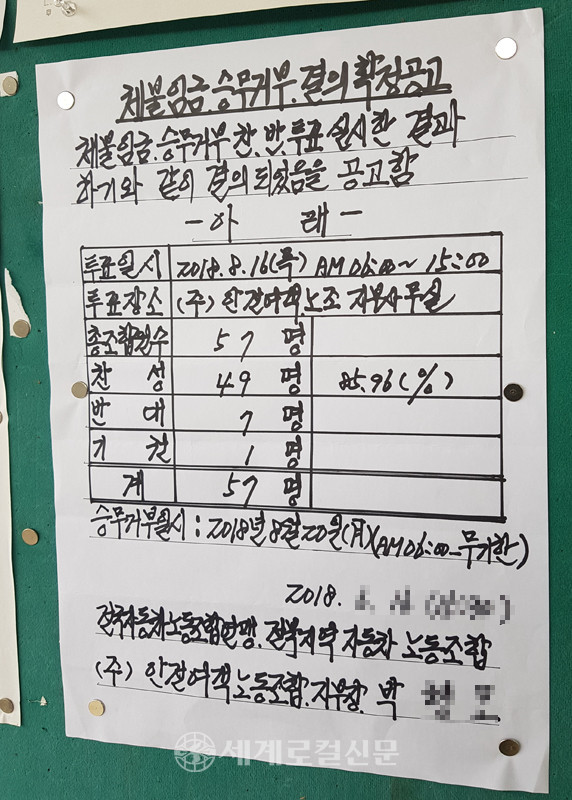 체불임금.승무거부.결의확정공고
체불임금.승무거부 찬,반,투표 실시한 결과
하기와 같이 결의되었음을 공고함
- 아 래 -
투표일시 2018.8.16(목) AM 06:00~ 15:00
투표장소 (주)안전여객노조 지부사무실
총조합원수 57 명
찬 성 49 명 85.96(%)
반 대 7 명
기 권 1 명
계 57 명
승무거부일시 : 2018년8월20일(月)(AM06:00-무기한)
2018.
전국자동차노동조합연맹.전북지역 자동차 노동조합
(주) 안전여객노동조합.지부장. 박
세계로컬신문